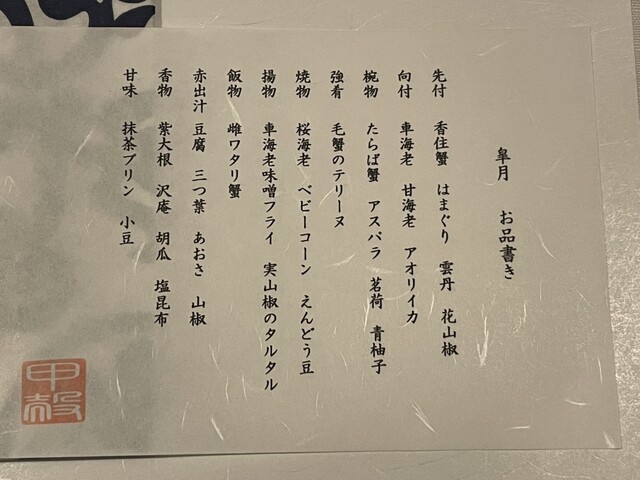 皐月　お品書き
先付　香住蟹　はまぐり　雲丹　花山椒
向付　車海老　甘海老　アオリイカ
椀物　たらば蟹　アスパラ　茗荷　青柚子
強肴　毛蟹のテリーヌ
焼物　桜海老　ベビーコーン　えんどう豆
揚物　車海老味噌フライ　実山椒のタルタル
飯物　雌ワタリ蟹
赤出汁　豆腐　三つ葉　あおさ　山椒
香物　紫大根　沢庵　胡瓜　塩昆布
甘味　抹茶プリン　小豆
甲殻